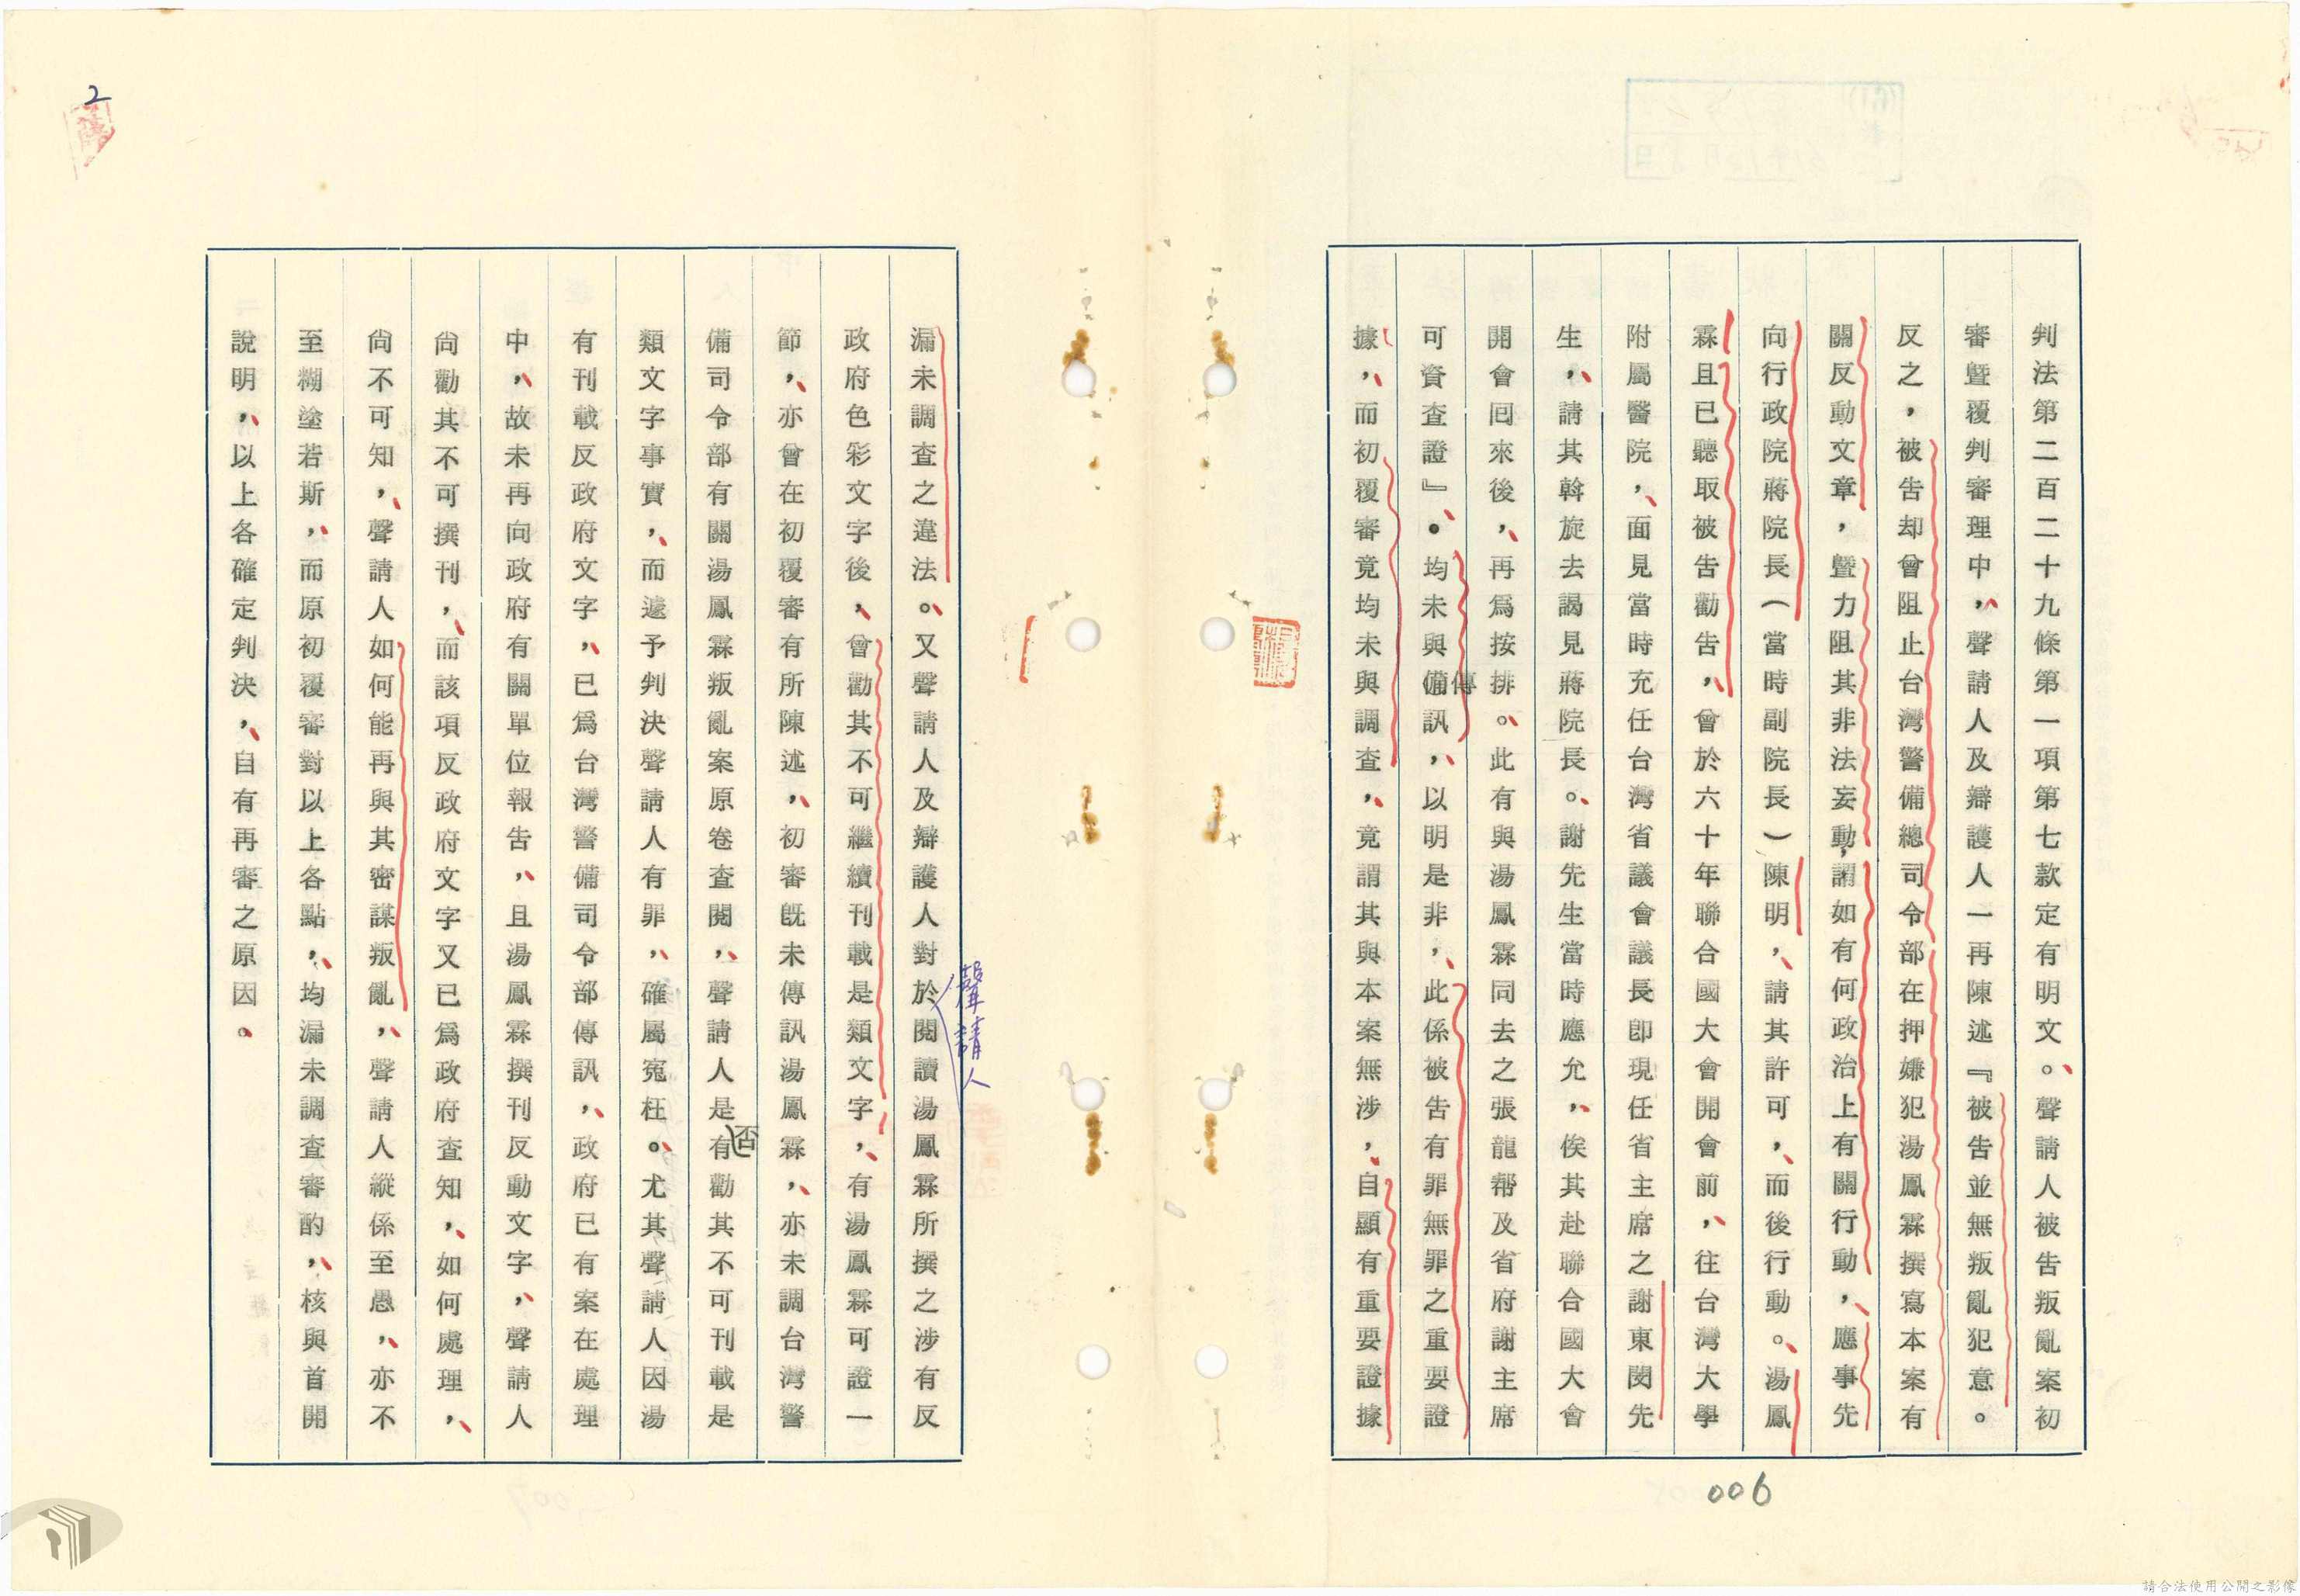 判法第二百二十九條第一項第七款定有明文。聲請人被告叛亂案初
審暨覆判審理中，聲請人及辯護人一再陳述『被告並無叛亂犯意。
反之，被告却曾阻止台灣警備總司令部在押嫌犯湯鳳霖撰寫本案有
關反動文章，暨力阻其非法妄動，謂如有何政治上有關行動，應事先
向行政院蔣院長（當時副院長）陳明，請其許可，而後行動。湯鳳
霖且已聽取被告勸告，曾於六十年聯合國大會開會前，往台灣大學
附屬醫院，面見當時充任台灣省議會議長卽現任省主席之謝東閔先
生，請其斡旋去謁見蔣院長。謝先生當時應允，俟其赴聯合國大會
開會囘來後，再爲按排。此有與湯鳳霖同去之張龍帮及省府謝主席
可資查證』。均未與傳訊，以明是非，此係被告有罪無罪之重要證
據，而初覆審竟均未與調查，竟謂其與本案無涉，自顯有重要證據
006
漏未調查之違法。又聲請人及辯護人對於聲請人閱讀湯鳳霖所撰之涉有反
政府色彩文字後，曾勸其不可繼續刊載是類文字，有湯鳳霖可證一
節，亦曾在初覆審有所陳述，初審旣未傳訊湯鳳霖，亦未調台灣警
備司令部有關湯鳳霖叛亂案原卷查閱，聲請人是否有勸其不可刊載是
類文字事實，而遽予判決聲請人有罪，確屬寃枉。尤其聲請人因湯
有刊載反政府文字，已爲台灣警備司令部傳訊，政府已有案在處理
中，故未再向政府有關單位報告，且湯鳳霖撰刊反動文字，聲請人
尙勸其不可撰刊，而該項反政府文字又已爲政府查知，如何處理，
尙不可知，聲請人如何能再與其密謀叛亂，聲請人縱係至愚，亦不
至糊塗若斯，而原初覆審對以上各點，均漏未調查審酌，核與首開
說明，以上各確定判決，自有再審之原因。
2
請合法使用公開之影像